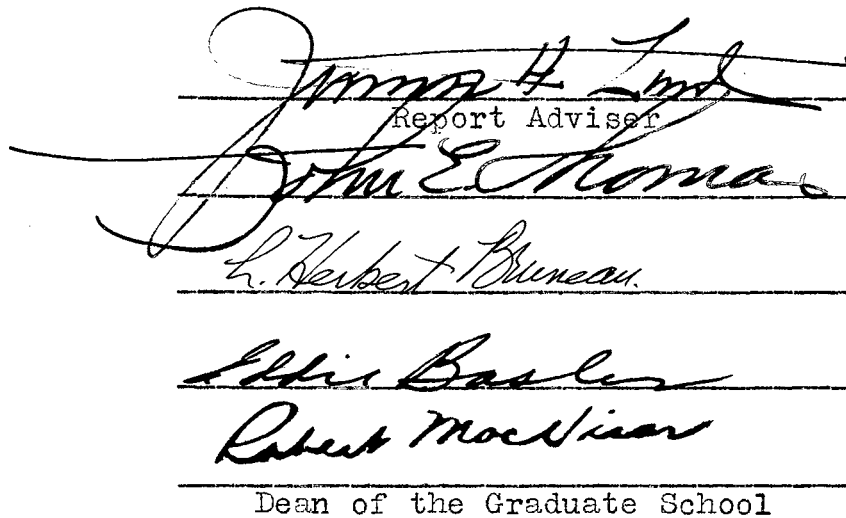 H.
Report Adviser
John E. Thomas
L. Herbert Bruneau.
Eddie Basler
Robert MacVicar
Dean of the Graduate School